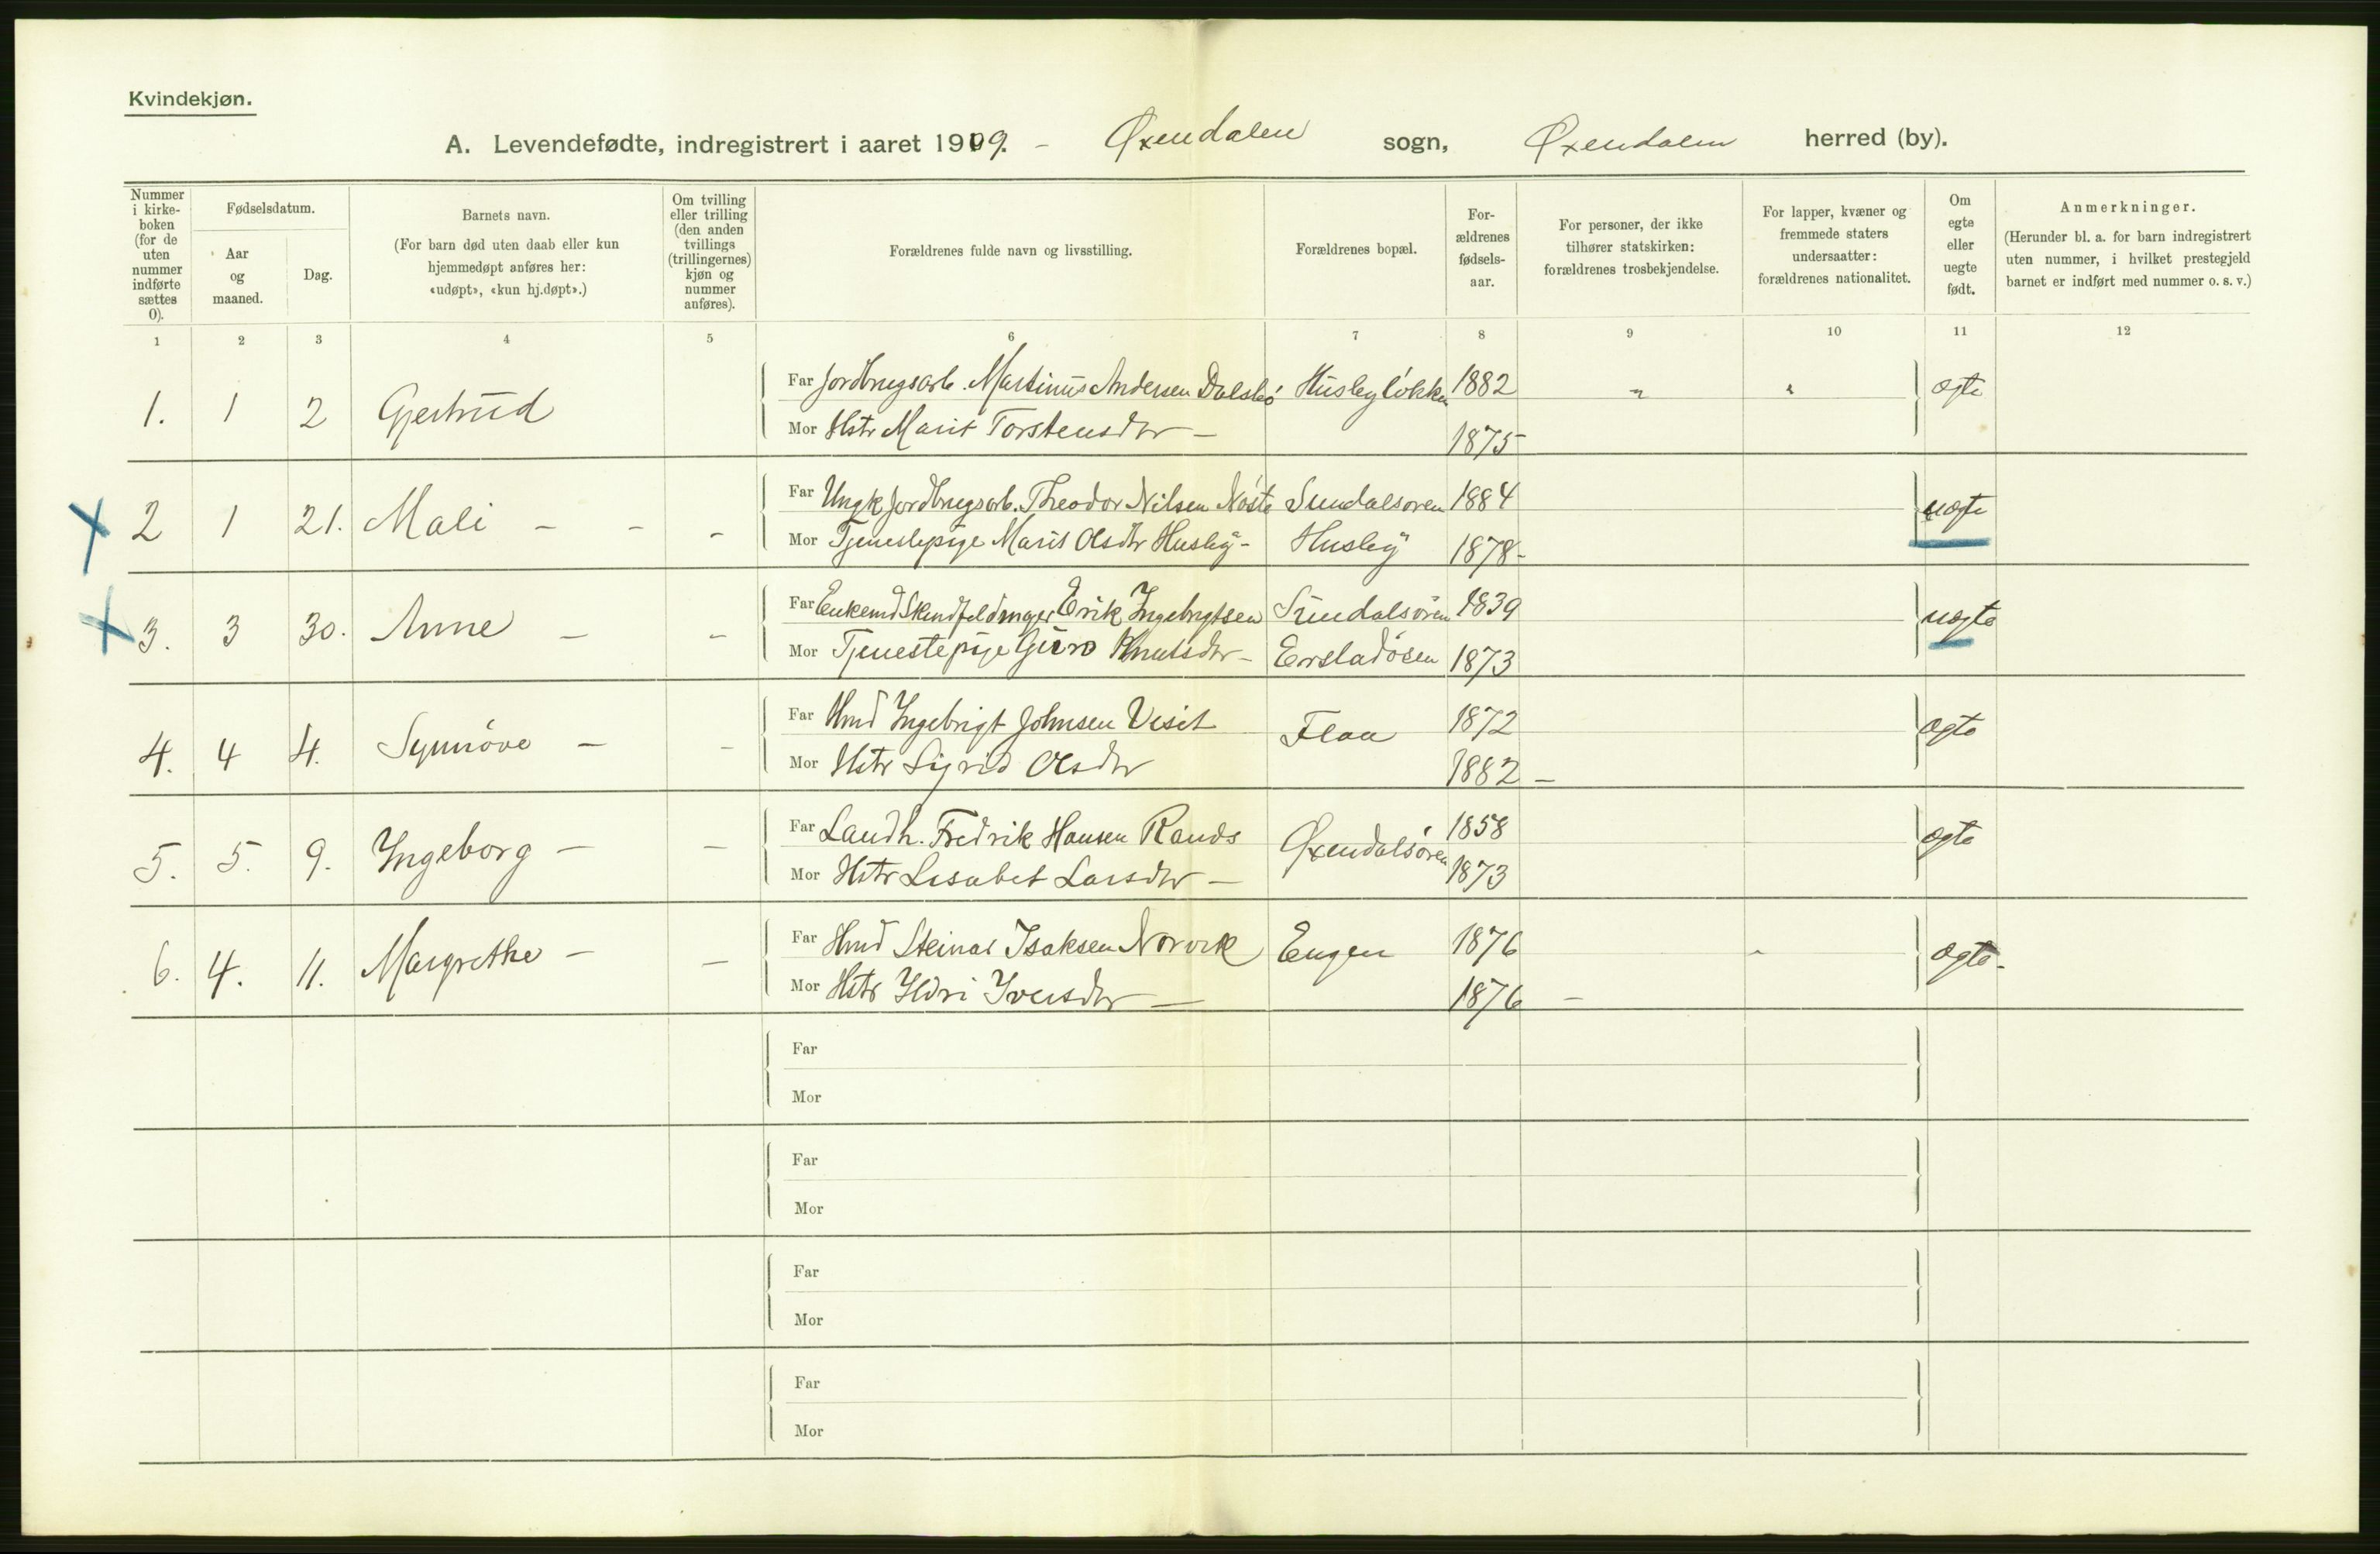 Kvindekjøn.
A. Levendefødte, indregistrert i aaret 1909. - Øxendalen sogn, Øxendalen herred (by).
Nummer i kirke-boken (for de uten nummer indførte sættes 0).
Fødselsdatum.
Aar og maaned.
Dag.
Barnets navn.
(For barn død uten daab eller kun hjemmedøpt anføres her: «udøpt», «kun hj.døpt».)
Om tvilling eller trilling (den anden tvillings (trillingernes) kjøn og nummer anføres).
Forældrenes fulde navn og livsstilling.
Forældrenes bopæl.
For-ældrenes fødsels-aar.
For personer, der ikke tilhører statskirken: forældrenes trosbekjendelse.
For lapper, kvæner og fremmede staters undersaatter: forældrenes nationalitet.
Om egte eller uegte født.
Anmerkninger.
(Herunder bl. a. for barn indregistrert uten nummer, i hvilket prestegjeld barnet er indført med nummer o. s. v.)
1 2 3 4 5 6 7 8 9 10 11 12
1. 1 2 Gjertrud Far Jordbrugsarb. Martinus Andersen Dalsbö Husbyløkken 1882 " " ægte
Mor Hstr Marit Torstensdtr - 1875
X 2 1 21. Mali - - - Far Ungk Jordbrugsarb. Theodor Nilsen Nøste Sundalsøren 1884 uægte
Mor Tjenestepige Marit Olsdtr Husby - Husby 1878 -
X 3. 3 30. Anne - - Far Enkemd Skindfeldmager Erik Ingebrigtsen Sundalsøren 1839 uægte
Mor Tjenestepige Guro Knutsdtr - 1873
4. 4 4. Synnöve - - Far Hmd Ingebrigt Johnsen Visit Flaa 1872 ægte
Mor Hstr Sigrid Olsdtr 1882 -
5. 5. 9. Ingeborg - - Far Landh. Fredrik Hansen Rands Øxendalsøren 1858 ægte
Mor Hstr Lisabet Larsdtr - 1873
6. 4. 11. Margrethe - - Far Hmd Steinar Isaksen Norvik Engen 1876 ægte -
Mor Hstr Ildri Iversdtr - 1876 -
Far
Mor
Far
Mor
Far
Mor
Far
Mor